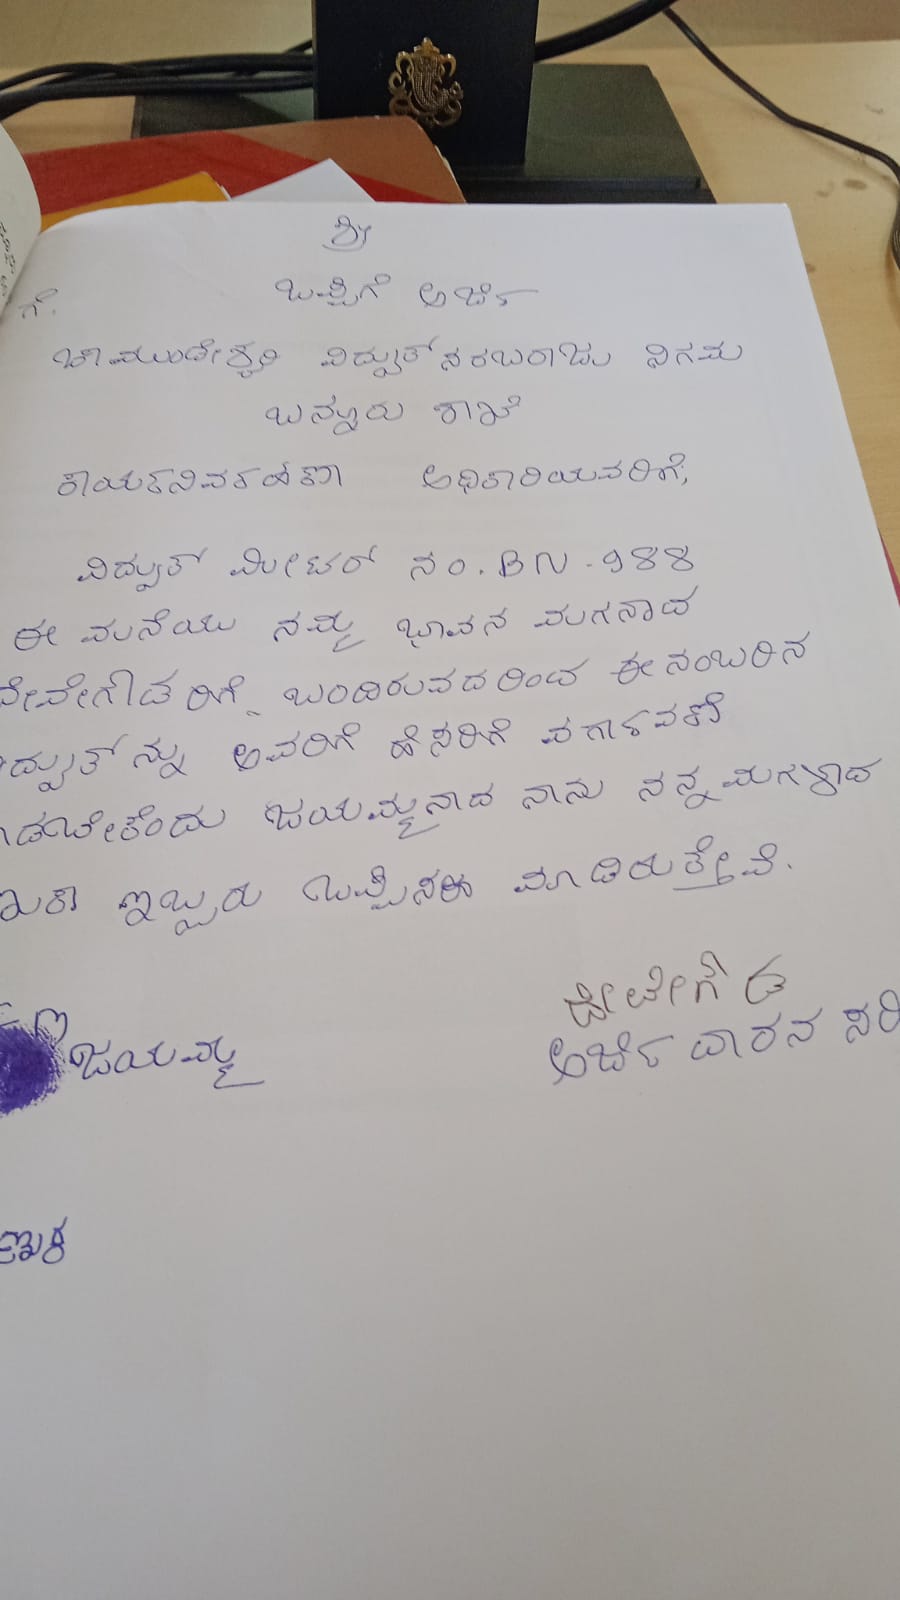 ಶ್ರೀ
ಒಪ್ಪಿಗೆ ಅರ್ಜಿ
ಗೆ.
ಚಾಮುಂಡೇಶ್ವರಿ ವಿದ್ಯುತ್ ಸರಬರಾಜು ನಿಗಮ
ಬನ್ನೂರು ಶಾಖೆ
ಕಾರ್ಯನಿರ್ವಹಣಾ ಅಧಿಕಾರಿಯವರಿಗೆ,
ವಿದ್ಯುತ್ ಮೀಟರ್ ನಂ. BN - 988
ಈ ಮನೆಯು ನಮ್ಮ ಭಾವನ ಮಗನಾದ
ದೇವೇಗೌಡರಿಗೆ ಬಂದಿರುವದರಿಂದ ಈ ನಂಬರಿನ
ದ್ಯುತ್ ನ್ನು ಅವರಿಗೆ ಹೆಸರಿಗೆ ವರ್ಗಾವಣೆ
ಡಬೇಕೆಂದು ಜಯಮ್ಮನಾದ ನಾನು ನನ್ನ ಮಗಳಾದ
ಇಬ್ಬರು ಒಪ್ಪಿ ಸಹಿ ಮಾಡಿರುತ್ತೇವೆ.
ದೇವೇಗೌಡ
ಜಯಮ್ಮ
ಅರ್ಜಿದಾರನ ಸಹಿ